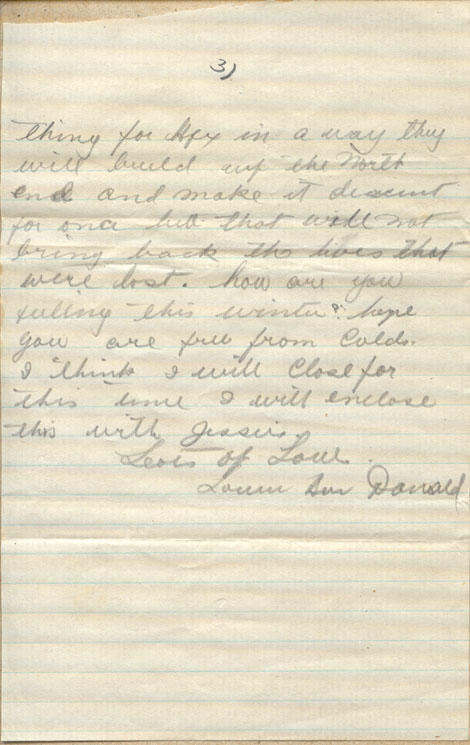 3)
thing for Hfx in a way they
will build up the North
end and make it descent
for once but that will not
bring back the lives that
were lost. how are you
feeling this winter? hope
you are free from Colds.
I think I will Close for
this time I will enclose
this with Jessies.
Lots of Love.
Son Donald